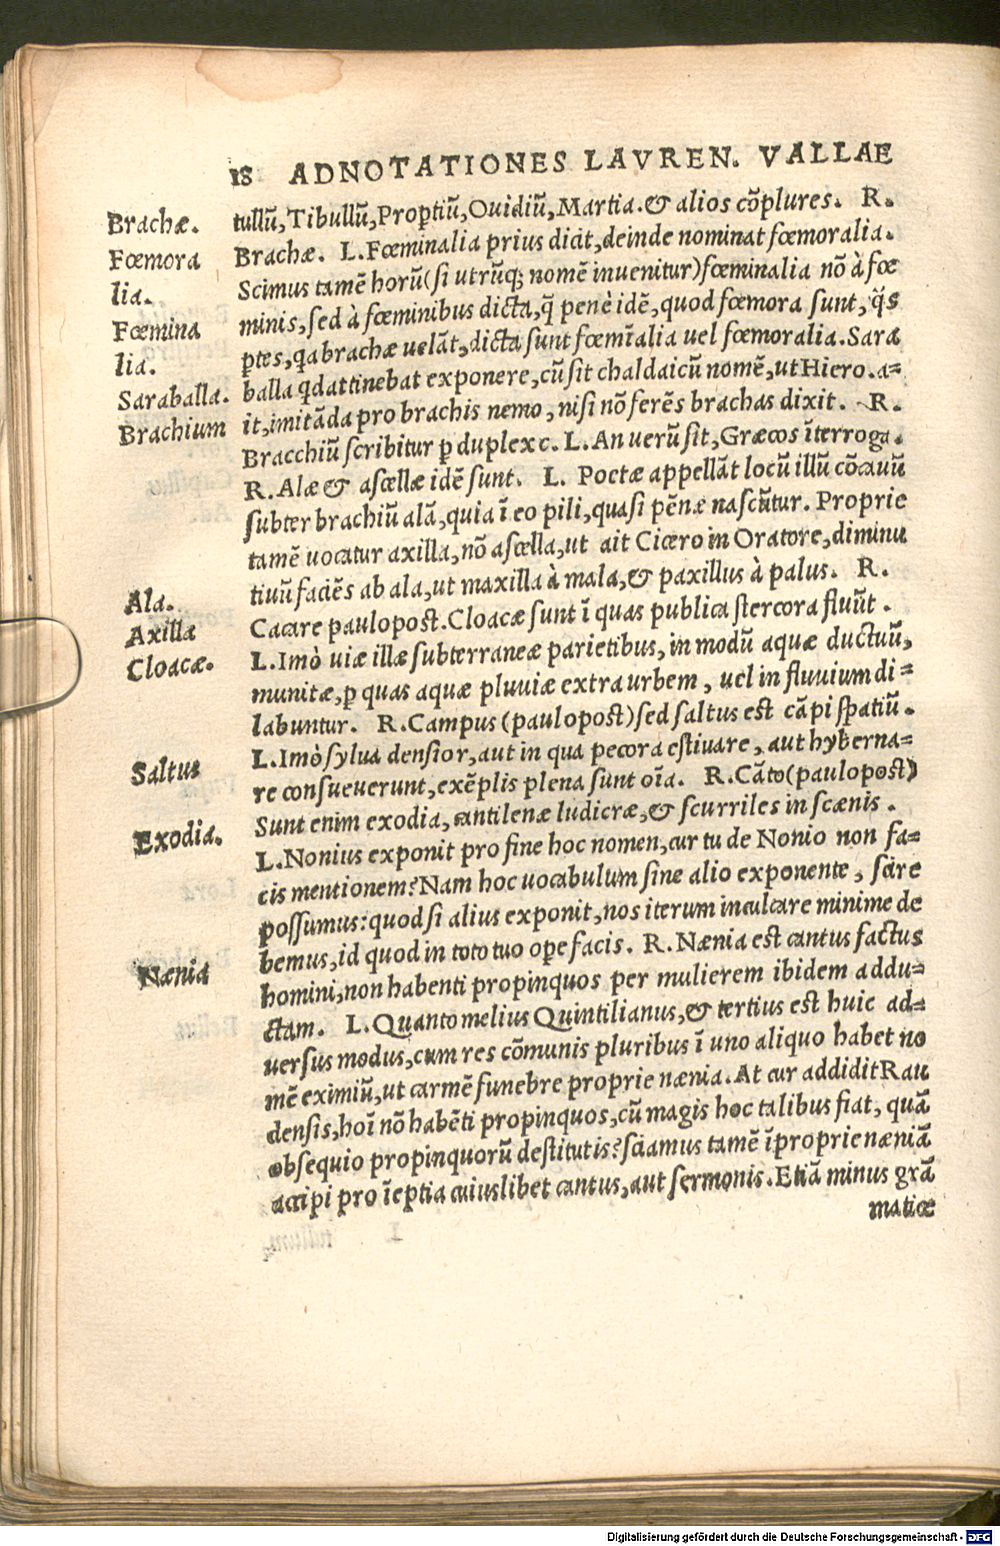 18 ADNOTATIONES LAVREN. VALLAE
Brachæ.
Fœmora
lia.
Fœmina
lia.
Saraballa.
Brachium
Ala.
Axilla
Cloacæ.
Saltus
Exodia.
Nænia
tullũ, Tibullũ, Propertiũ, Ouidiũ, Martia. & alios cõplures. R.
Brachæ. L. Fœminalia prius dicit, deinde nominat fœmoralia.
Scimus tamẽ horũ (si utrũq; nomẽ inuenitur) fœminalia nõ à fœ
minis, sed à fœminibus dicta, q̃ penè idẽ, quod fœmora sunt, q̃s
ꝑtes, qa brachæ uelãt, dicta sunt fœmĩalia uel fœmoralia. Sara
balla qd attinebat exponere, cũ sit chaldaicũ nomẽ, ut Hiero. a=
it, imitãda pro brachis nemo, nisi nõ ferẽs brachas dixit. R.
Bracchiũ scribitur ꝑ duplex c. L. An uerũ sit, Græcos ĩterroga.
R. Alæ & ascellæ idẽ sunt. L. Poetæ appellãt locũ illũ cõcauũ
subter brachiũ alã, quia ĩ eo pili, quasi pẽnæ nascũtur. Proprie
tamẽ uocatur axilla, nõ ascella, ut ait Cicero in Oratore, diminu
tiuũ faciẽs ab ala, ut maxilla à mala, & paxillus à palus. R.
Cacare paulopost. Cloacæ sunt ĩ quas publica stercora fluũt.
L. Imò uiæ illæ subterraneæ parietibus, in modũ aquæ ductuũ,
munitæ, ꝑ quas aquæ pluuiæ extra urbem, uel in fluuium di=
labuntur. R. Campus (paulopost) sed saltus est cãpi spatiũ.
L. Imò sylua densior, aut in qua pecora estiuare, aut hyberna=
re consueuerunt, exẽplis plena sunt oĩa. R. Cãto (paulopost)
Sunt enim exodia, cantilenæ ludicræ, & scurriles in scænis.
L. Nonius exponit pro fine hoc nomen, cur tu de Nonio non fa=
cis mentionem? Nam hoc uocabulum sine alio exponente, scire
possumus: quod si alius exponit, nos iterum inculcare minime de
bemus, id quod in toto tuo ope facis. R. Nænia est cantus factus
homini, non habenti propinquos per mulierem ibidem addu=
ctam. L. Quanto melius Quintilianus, & tertius est huic ad=
uersus modus, cum res cõmunis pluribus ĩ uno aliquo habet no
mẽ eximiũ, ut carmẽ funebre proprie nænia. At cur addidit Rau
densis, hoĩ nõ habẽti propinquos, cũ magis hoc talibus fiat, quã
obsequio propinquorũ destitutis? sciamus tamẽ ĩproprie næniã
accipi pro ĩeptia cuiuslibet cantus, aut sermonis. Etiã minus grã
maticæ
Digitalisierung gefördert durch die Deutsche Forschungsgemeinschaft - DFG